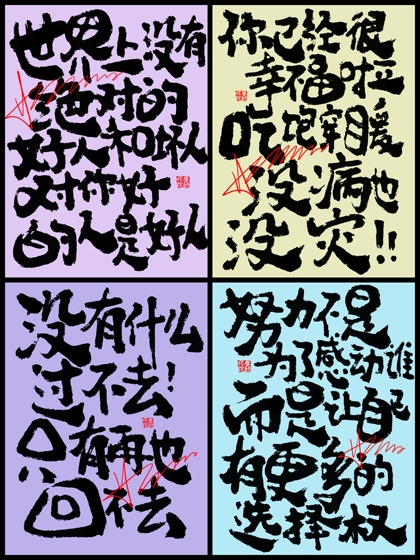 世界上没有
绝对的
好人和坏人
对你好
的人是好人
你已经很
幸福啦
吃饱穿暖
没病也
没灾!!
没有什么
过不去!
只有再也
回不去
努力不是
为了感动谁
而是让自己
有更多的
选择权